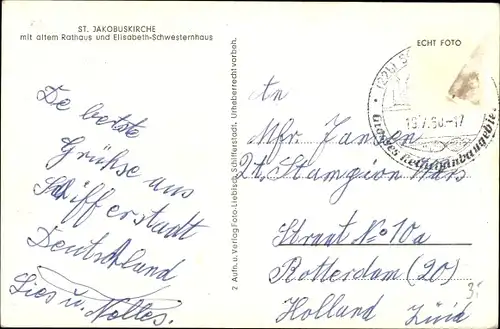 ST. JAKOBUSKIRCHE
mit altem Rathaus und Elisabeth-Schwesternhaus
ECHT FOTO
De betste
Grühse aus
Schifferstadt
Deutschland
Lies u. Nolles.
2 Aufn. u. Verlag Foto-Liebisch, Schifferstadt. Urheberrecht vorbeh.
(22b)
19.7.60.-17
Grosses
An
Mfr. Jansen
2t. Stampion Wars
Straat No 10a
Rotterdam (20)
Holland Züid